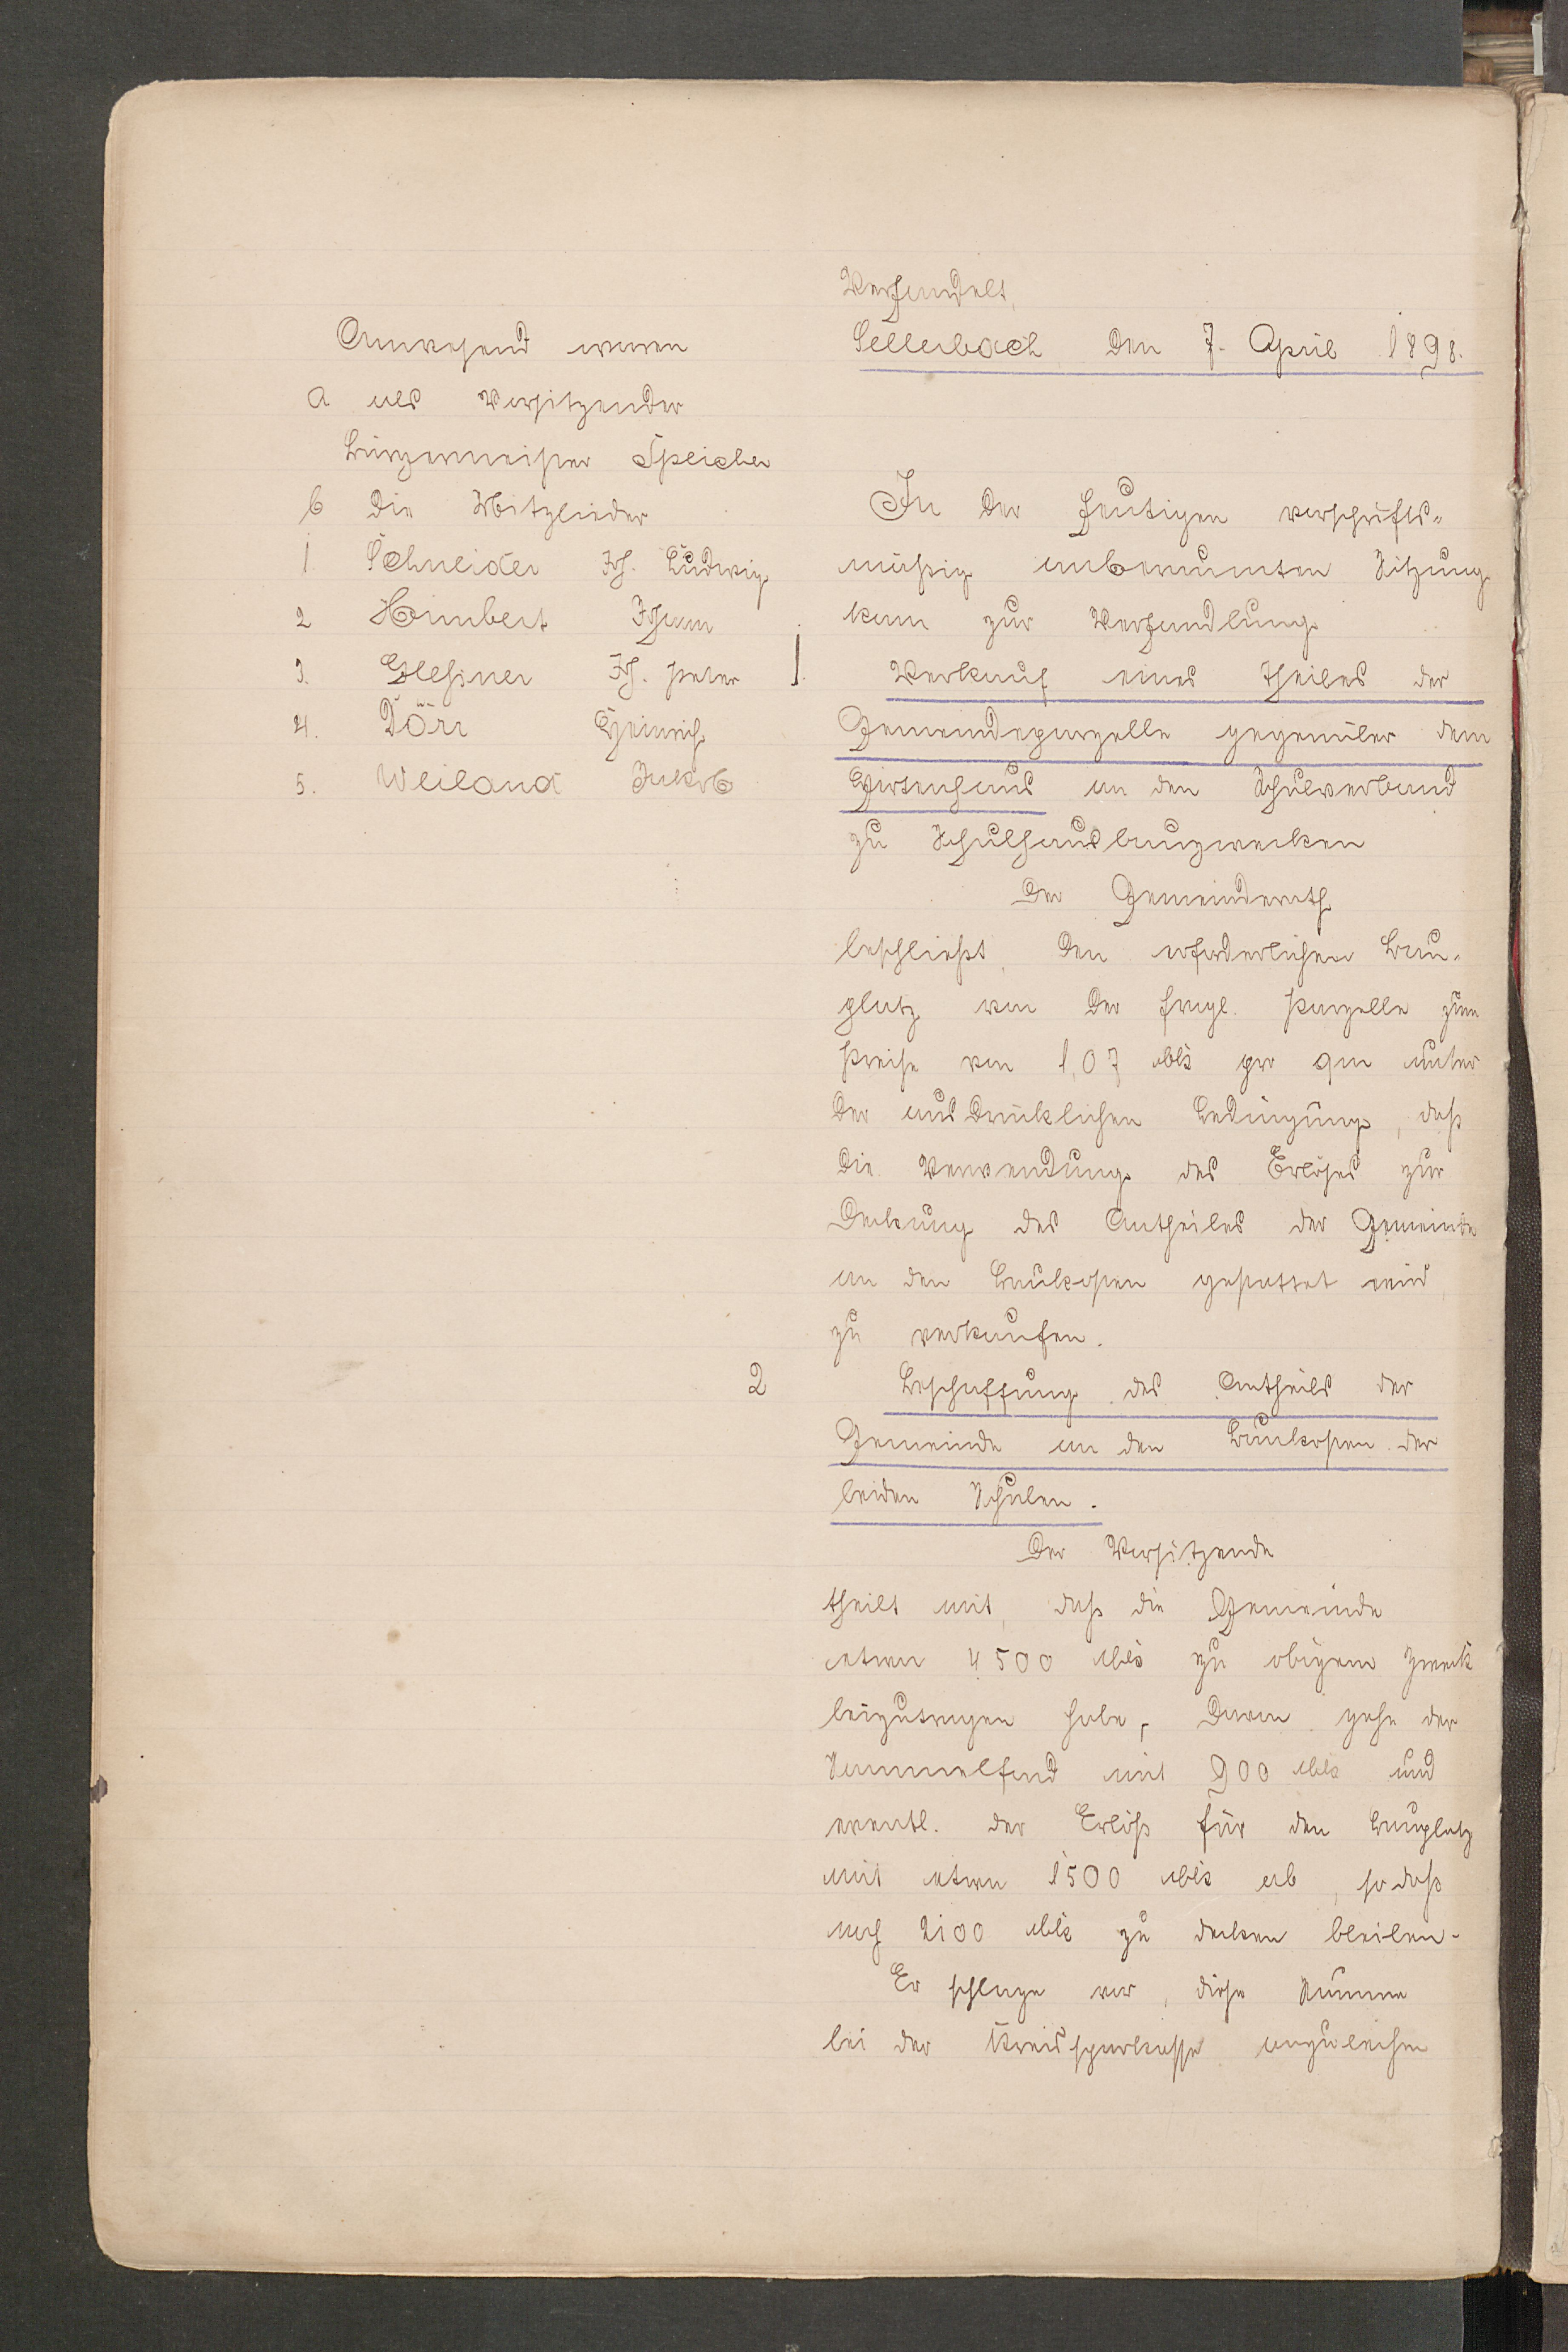 Anwesend waren
a als Vorsitzender
Bürgermeister Speicher
b die Mitglieder
1. Schneider Joh. Ludwig
2 Himbert Johann
3. Glessner Joh. Peter
4. Dörr Heinrich
5. Weiland Jakob
Verhandelt,
Sellerbach den 7. April 1898.
In der heutigen vorschrifts-
mäßig anberaumten Sitzung
kam zur Verhandlung
1. Verkauf eines Theiles der
Gemeindeparzelle gegenüber dem
Hirtenhaus an den Schulverband
zu Schulhausbauzwecken
Der Gemeinderath
beschließt, den erforderlichen Bau-
platz von der fragl. Parzelle zum
Preise von 1,07 Mk pro qm unter
der ausdrücklichen Bedingung, daß
die Verwendung des Erlöses zur
Deckung des Antheiles der Gemeinde
an den Baukosten gestattet wird,
zu verkaufen.
2 Beschaffung des Antheils der
Gemeinde an den Baukosten der
beiden Schulen.
Der Vorsitzende
theilt mit, daß die Gemeinde
etwa 4500 Mk zu obigem Zweck
beizutragen habe, davon gehe der
Sammelfond mit 900 Mk und
eventl. der Erlös für den Bauplatz
mit etwa 1500 Mk ab, so daß
noch 2100 Mk zu decken bleiben.
Er schlage vor, diese Summe
bei der Kreissparkasse anzuleihen